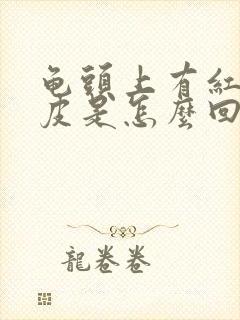 龟頭上有紅
皮是怎麼回
龍卷卷